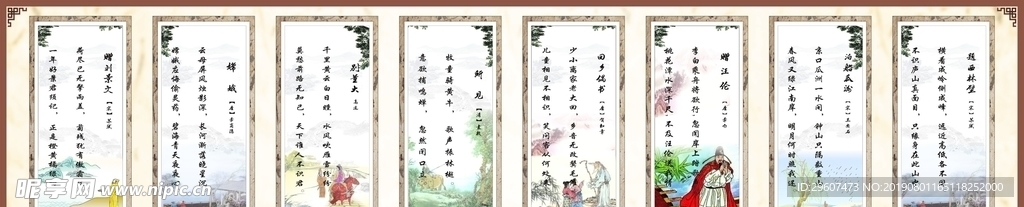 赠刘景文
【宋】苏轼
荷尽已无擎雨盖,菊残犹有傲霜
一年好景君须记,正是橙黄橘绿
嫦娥
【唐】李商隐
云母屏风烛影深,长河渐落晓星沉
嫦娥应悔偷灵药,碧海青天夜夜
别董大
高适
千里黄云白日曛,北风吹雁雪纷纷
莫愁前路无知己,天下谁人不识君
所见
【清】袁枚
牧童骑黄牛,歌声振林樾
意欲捕鸣蝉,忽然闭口立
回乡偶书
【唐】贺知章
少小离家老大回,乡音无改鬓毛
儿童相见不相识,笑问客从何处
赠汪伦
【唐】李白
李白乘舟将欲行,忽闻岸上踏歌
桃花潭水深千尺,不及汪伦送我
泊船瓜洲
【宋】王安石
京口瓜洲一水间,钟山只隔数重
春风又绿江南岸,明月何时照我还
题西林壁
【宋】苏轼
横看成岭侧成峰,远近高低各不同
不识庐山真面目,只缘身在此山
昵享网 www.nipic.cn
ID:29607473 NO:20190801165118252000